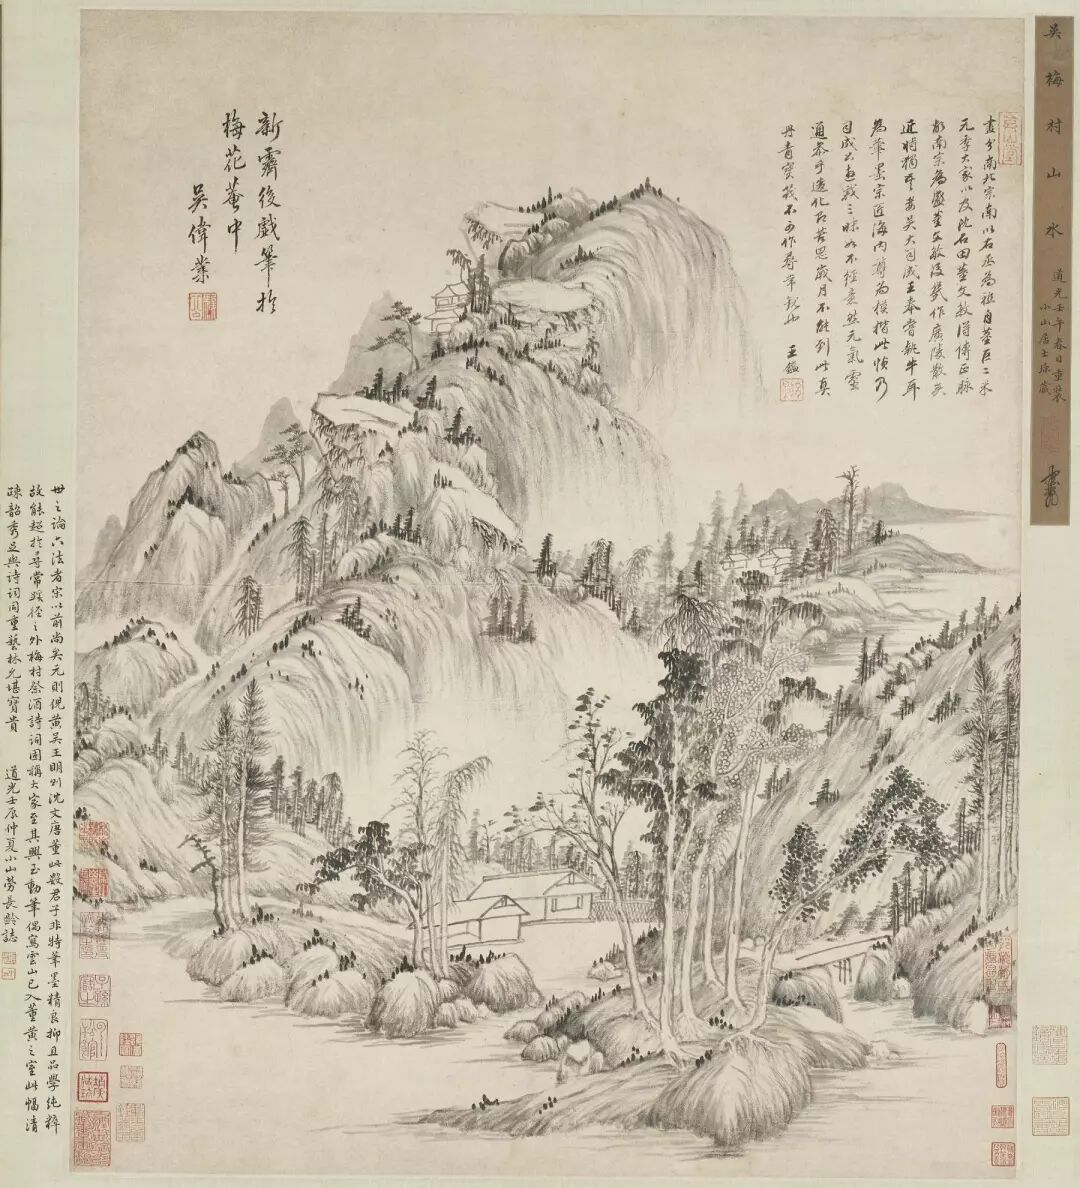 吳梅村山水
道光壬午春日重裝
小山居士珍藏
畫分南北宗南以右丞為祖自董巨二米
元季大家以及沈石田董文敏得傳正脉
故南宗為盛董文敏後幾作廣陵散矣
近時獨
吳大司成王奉常執牛耳
為筆墨宗匠海內尊為模楷此幀乃
司成公遊戲三昧必不經意然元氣靈
通參乎造化右苦思歲月不能到此真
丹青寶筏不可作尋常觀也 王鑑
新霽後戲筆於
梅花菴中
吳偉業
世之論六法者宋以前尚矣元則倪黃吳王明則沈文唐董此數君子非特筆墨精良抑且品學純粹
故能超於尋常蹊徑之外梅村祭酒詩詞固稱大家至其興至動筆偶寫雲山已入董黃之室此幅清
疎韶秀足與詩詞同重藝林尤堪寶貴 道光壬辰仲夏小山勞長齡誌